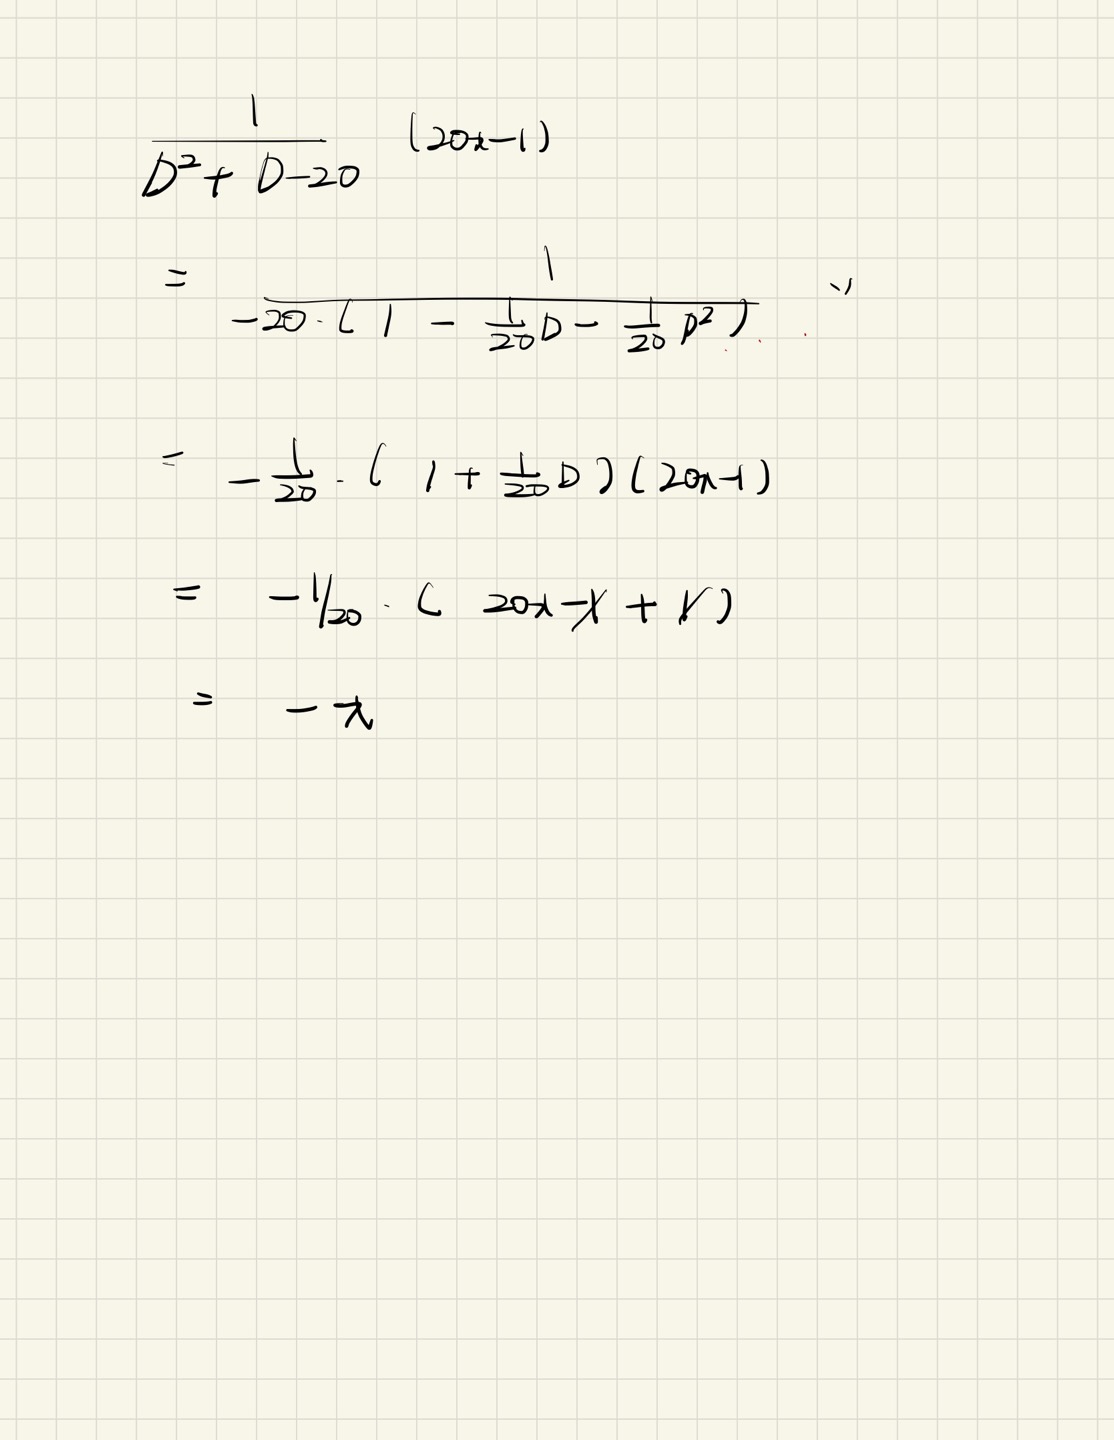 1/(D²+D-20) (20x-1)
= 1/(-20·(1 - 1/20 D - 1/20 D²)) 〃
= -1/20·(1 + 1/20 D)(20x-1)
= -1/20·(20x-1+1)
= -x